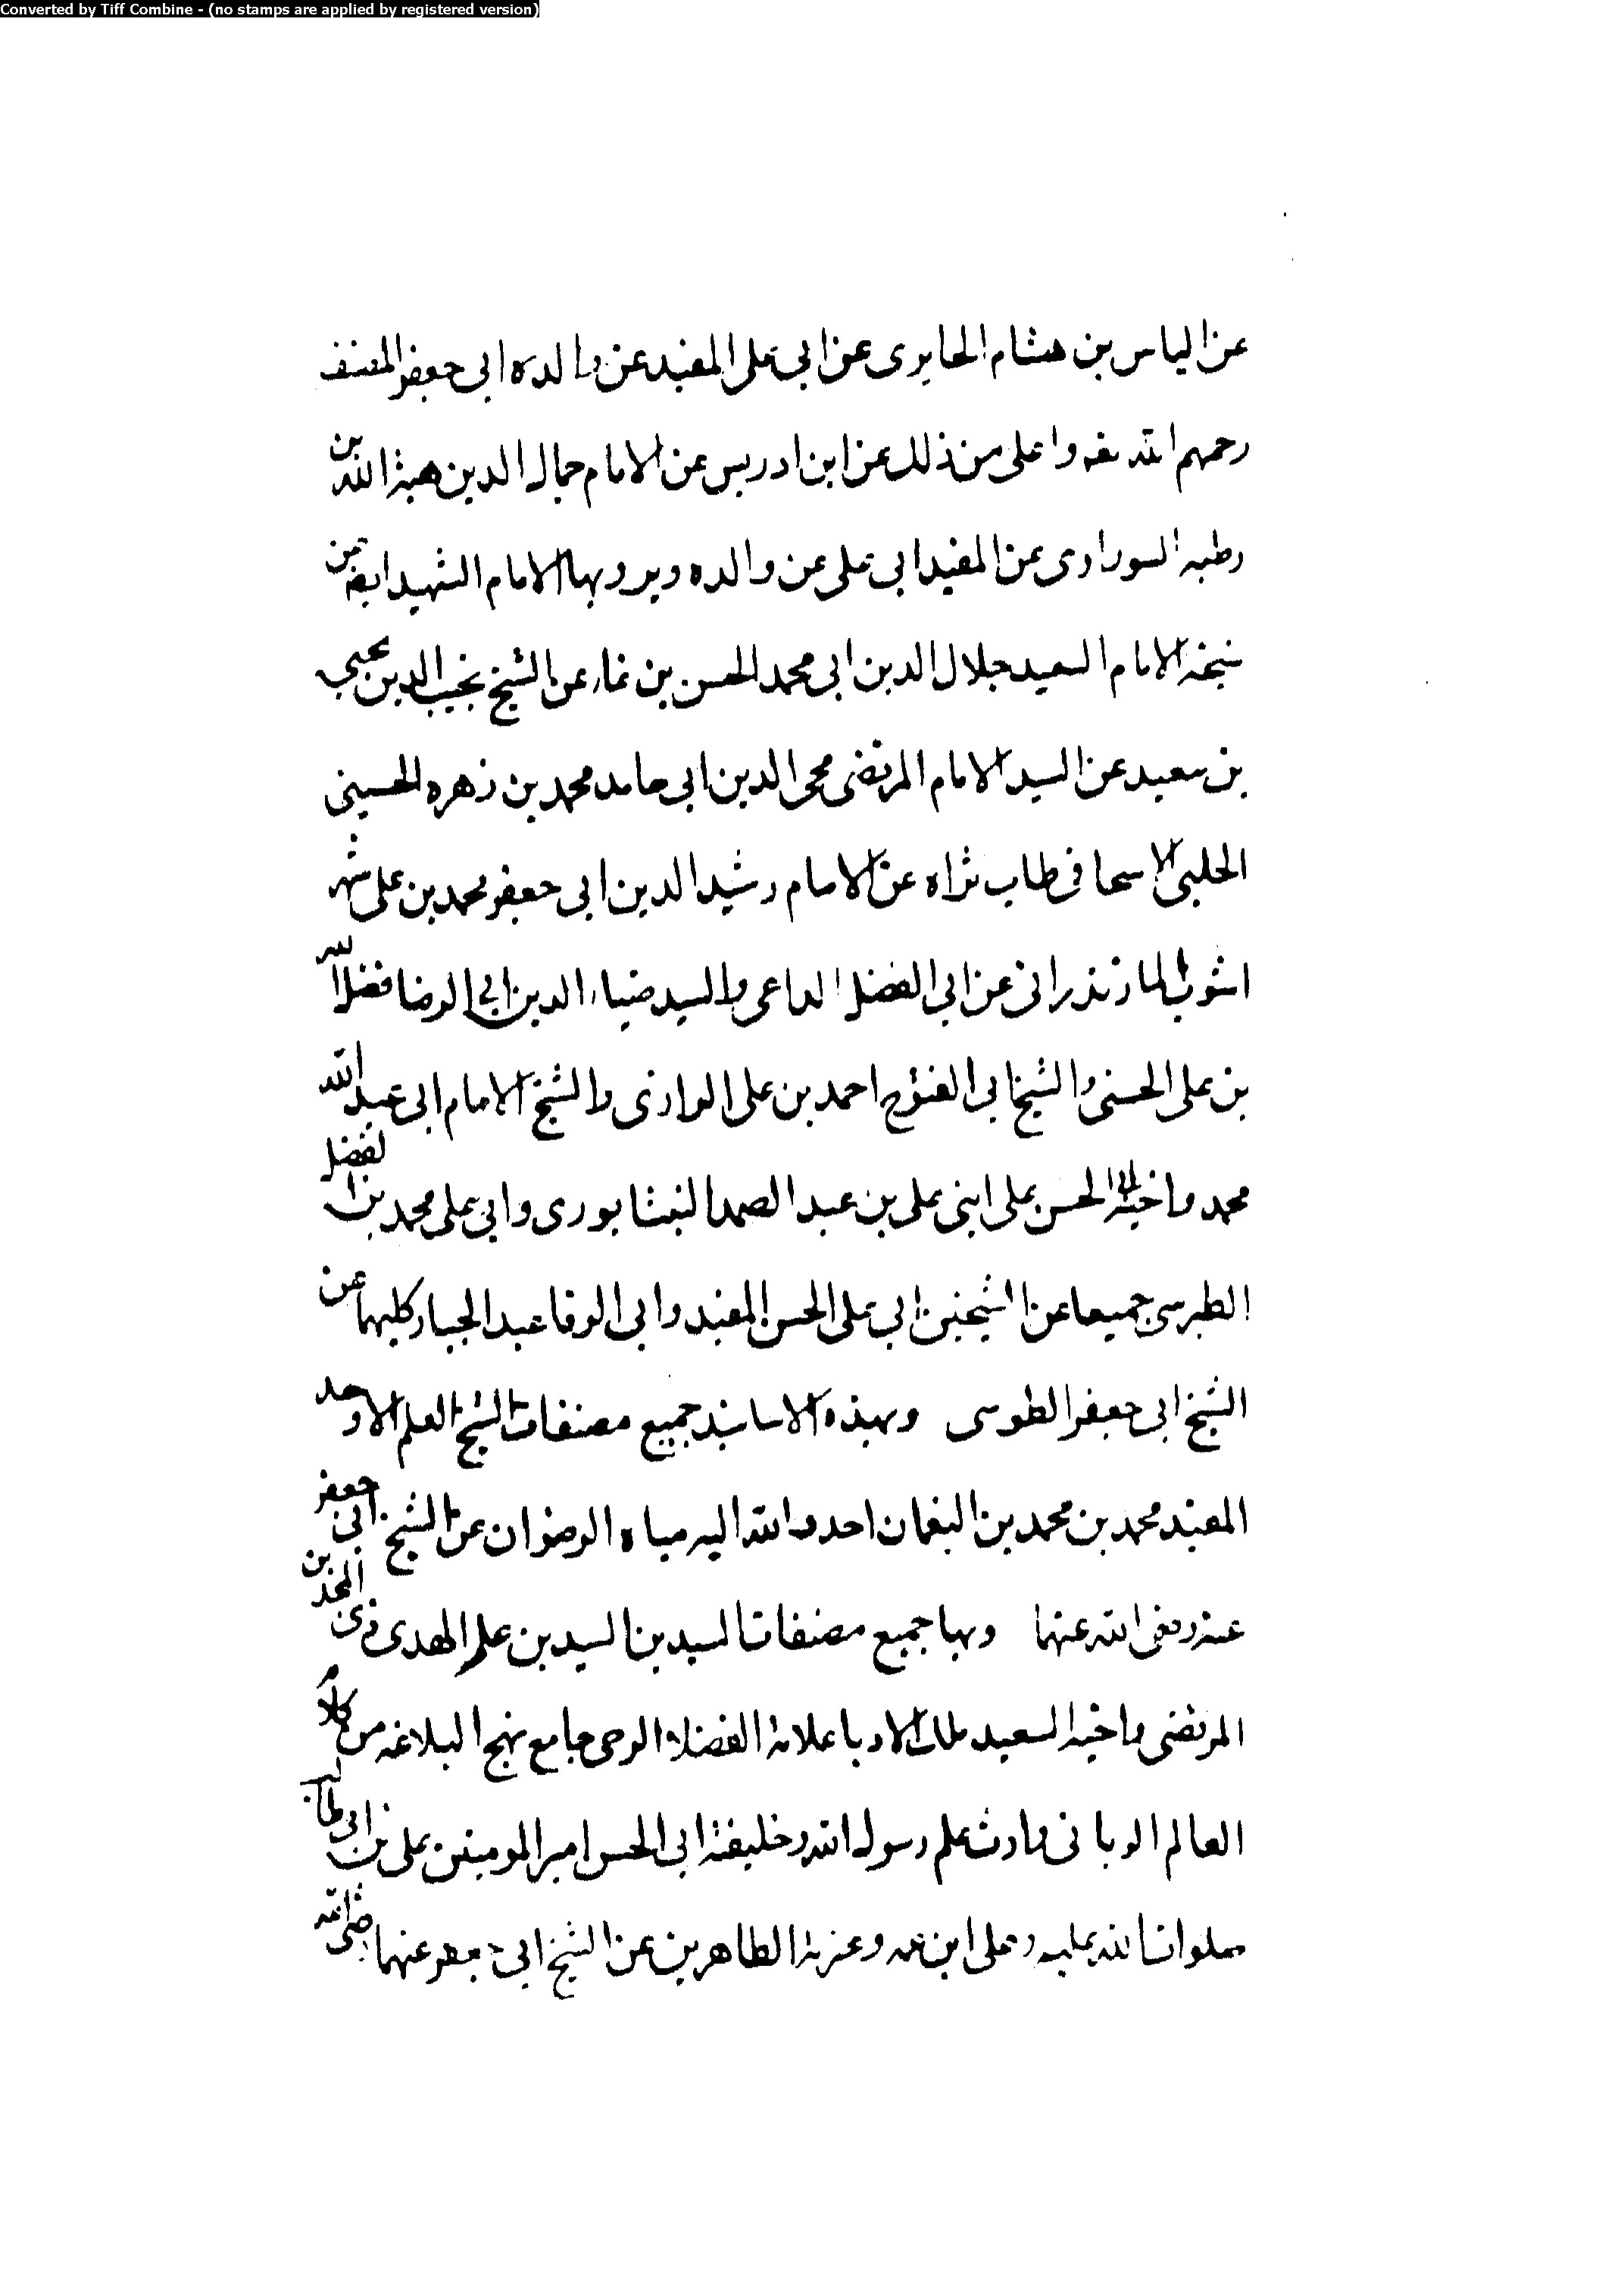 Converted by Tiff Combine - (no stamps are applied by registered version)
عن الياس بن هشام الحايرى عن ابى على المفيد عن والده ابى جعفر المصنف
رحمهم الله واعلى من ذلك عن ابن ادريس عن الامام جمال الدين هبة الله بن
رطبه السوراوى عن المفيد ابى على عن والده ويرويها الامام الشهيد ايضا عن
شيخه الامام السعيد جلال الدين ابى محمد الحسن بن نما عن الشيخ نجيب الدين يحيى
بن سعيد عن السيد الامام المرتضى محى الدين ابى حامد محمد بن زهره الحسينى
الحلبى الاسحاقى طاب ثراه عن الامام رشيد الدين ابى جعفر محمد بن على شهر
اشوب المازندرانى عن ابى الفضل الداعى والسيد ضياء الدين ابى الرضا فضل الله
بن على الحسنى والشيخ ابى الفتوح احمد بن على الرازى والشيخ الامام ابى عبد الله
محمد واخيه ابى الحسن على ابنى على بن عبد الصمد النيشابورى وابى على محمد بن الفضل
الطبرسى جميعا عن الشيخين ابى على الحسن المفيد وابى الوفا عبد الجبار كليهما عن
الشيخ ابى جعفر الطوسى وبهذه الاسانيد جميع مصنفات الشيخ العلم الاوحد
المفيد محمد بن محمد بن النعمان احدى الله اليه مياه الرضوان عن الشيخ ابى جعفر
عنه رضى الله عنهما وبها جميع مصنفات السيد بن السيد بن علم الهدى ذى المجدين
المرتضى واخيه السعيد ملك الادبا علامة الفضلا الرضى جامع نهج البلاغه من كلام
العالم الربانى وارث علم رسول الله وخليفته ابى الحسن امير المومنين على بن ابى طالب
صلوات الله عليه وعلى ابن عمه وعترته الطاهرين عن الشيخ ابى جعفر عنهما رضى الله